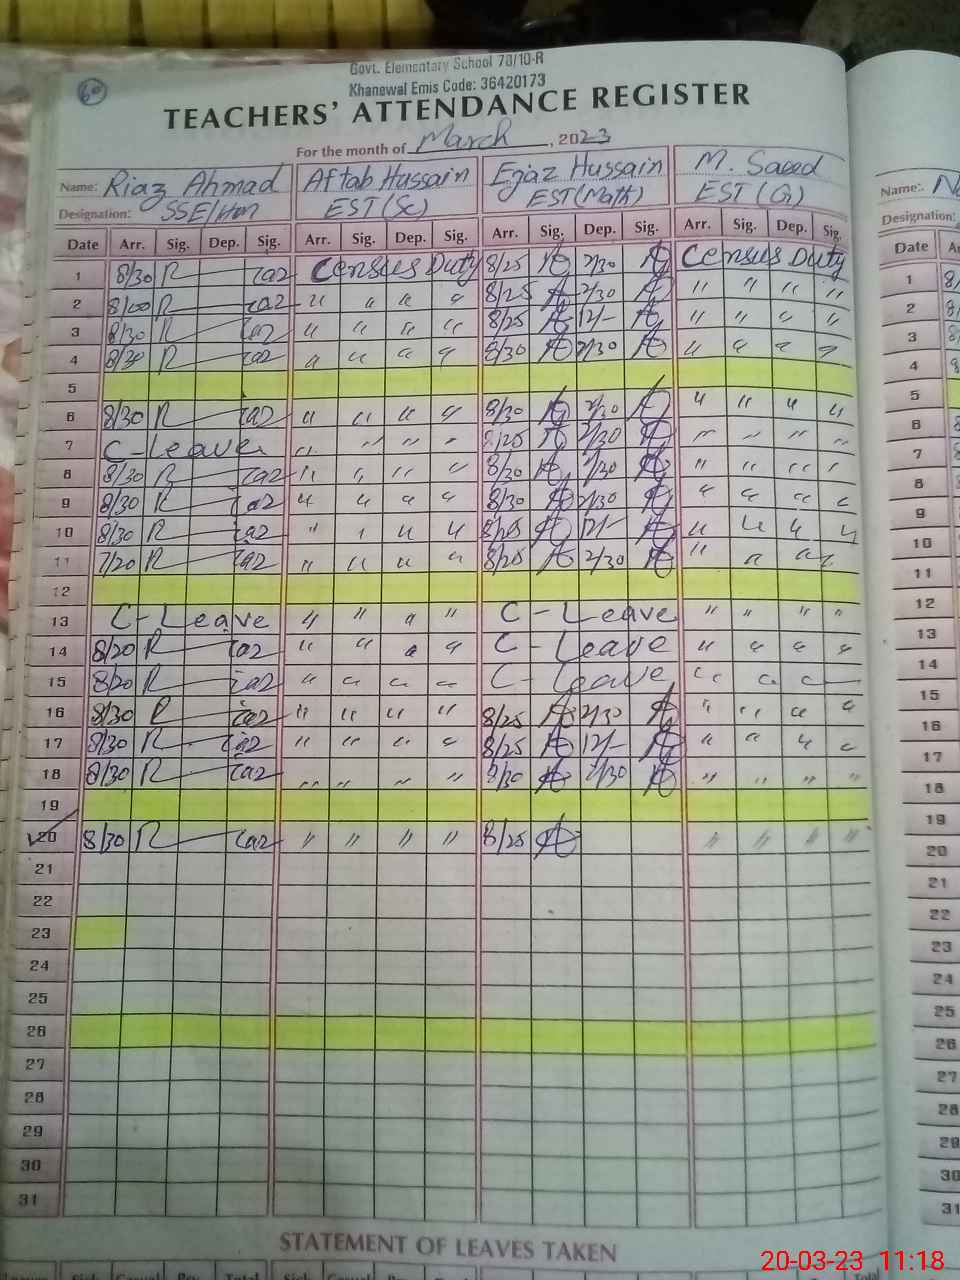 60
Govt. Elementary School 70/10-R
Khanewal Emis Code: 36420173
TEACHERS' ATTENDANCE REGISTER
For the month of March, 2023
Name: Riaz Ahmad Aftab Hussain Ejaz Hussain M. Saeed Name:
Designation: SSE/HM EST (Sc) EST (Math) EST (G) Designation:
Date Arr. Sig. Dep. Sig. Arr. Sig. Dep. Sig. Arr. Sig. Dep. Sig. Arr. Sig. Dep. Sig. Date
1 8/30 R iaz Census Duty 8/25 2/30 Census Duty 1
2 8/00 R iaz " " " " 8/25 2/30 " " " " 2
3 8/30 R iaz " " " " 8/25 12/- " " " " 3
4 8/30 R iaz " " " " 8/30 2/30 " " " " 4
5 5
6 8/30 R iaz " " " " 8/30 2/30 " " " " 6
7 C-Leave " " " " 8/25 2/30 " " " " 7
8 8/30 R iaz " " " " 8/30 2/30 " " " " 8
9 8/30 R iaz " " " " 8/30 2/30 " " " " 9
10 8/30 R iaz " " " " 8/25 12/- " " " " 10
11 7/20 R iaz " " " " 8/25 2/30 " " " " 11
12 12
13 C-Leave " " " " C-Leave " " " " 13
14 8/20 R iaz " " " " C-Leave " " " " 14
15 8/20 R iaz " " " " C-Leave " " " 15
16 8/30 R iaz " " " " 8/25 2/30 " " " " 16
17 8/30 R iaz " " " " 8/25 12/- " " " " 17
18 8/30 R iaz " " " " 8/30 2/30 " " " " 18
19 19
20 8/30 R iaz " " " " 8/25 " " " " 20
21 21
22 22
23 23
24 24
25 25
26 26
27 27
28 28
29 29
30 30
31 31
STATEMENT OF LEAVES TAKEN
20-03-23 11:18